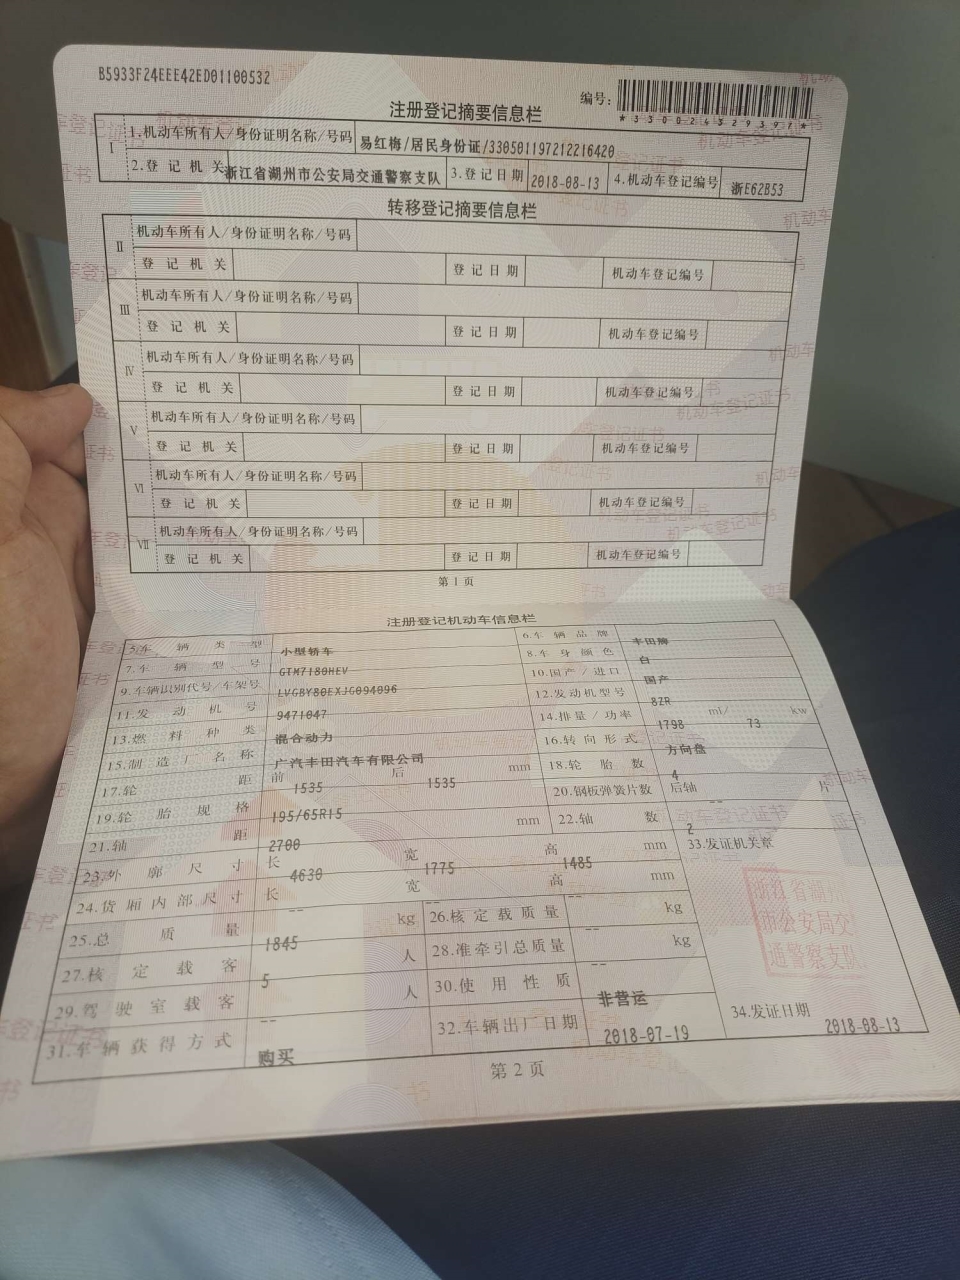 B5933F24EEE42ED01100532
编号:
*330024329397*
注册登记摘要信息栏
I
1.机动车所有人/身份证明名称/号码 易红梅/居民身份证/330501197212216420
2.登记机关 浙江省湖州市公安局交通警察支队 3.登记日期 2018-08-13 4.机动车登记编号 浙E62B53
转移登记摘要信息栏
II 机动车所有人/身份证明名称/号码
登记机关 登记日期 机动车登记编号
III 机动车所有人/身份证明名称/号码
登记机关 登记日期 机动车登记编号
IV 机动车所有人/身份证明名称/号码
登记机关 登记日期 机动车登记编号
V 机动车所有人/身份证明名称/号码
登记机关 登记日期 机动车登记编号
VI 机动车所有人/身份证明名称/号码
登记机关 登记日期 机动车登记编号
VII 机动车所有人/身份证明名称/号码
登记机关 登记日期 机动车登记编号
第1页
注册登记机动车信息栏
5.车辆类型 小型轿车 6.车辆品牌 丰田牌
7.车辆型号 GTM7180HEV 8.车身颜色 白
9.车辆识别代号/车架号 LVGBY80EXJG094096 10.国产/进口 国产
11.发动机号 9471047 12.发动机型号 8ZR
13.燃料种类 混合动力 14.排量/功率 1798 ml/ 73 kw
15.制造厂名称 广汽丰田汽车有限公司 16.转向形式 方向盘
17.轮距 前 1535 后 1535 mm 18.轮胎数 4
19.轮胎规格 195/65R15 20.钢板弹簧片数 后轴 -- 片
21.轴距 2700 mm 22.轴数 2
23.外廓尺寸 长 4630 宽 1775 高 1485 mm 33.发证机关章
24.货厢内部尺寸 长 -- 宽 -- 高 -- mm
25.总质量 1845 kg 26.核定载质量 -- kg
27.核定载客 5 人 28.准牵引总质量 -- kg
29.驾驶室载客 -- 人 30.使用性质 非营运
31.车辆获得方式 购买 32.车辆出厂日期 2018-07-19 34.发证日期 2018-08-13
浙江省湖州
市公安局交
通警察支队
第2页